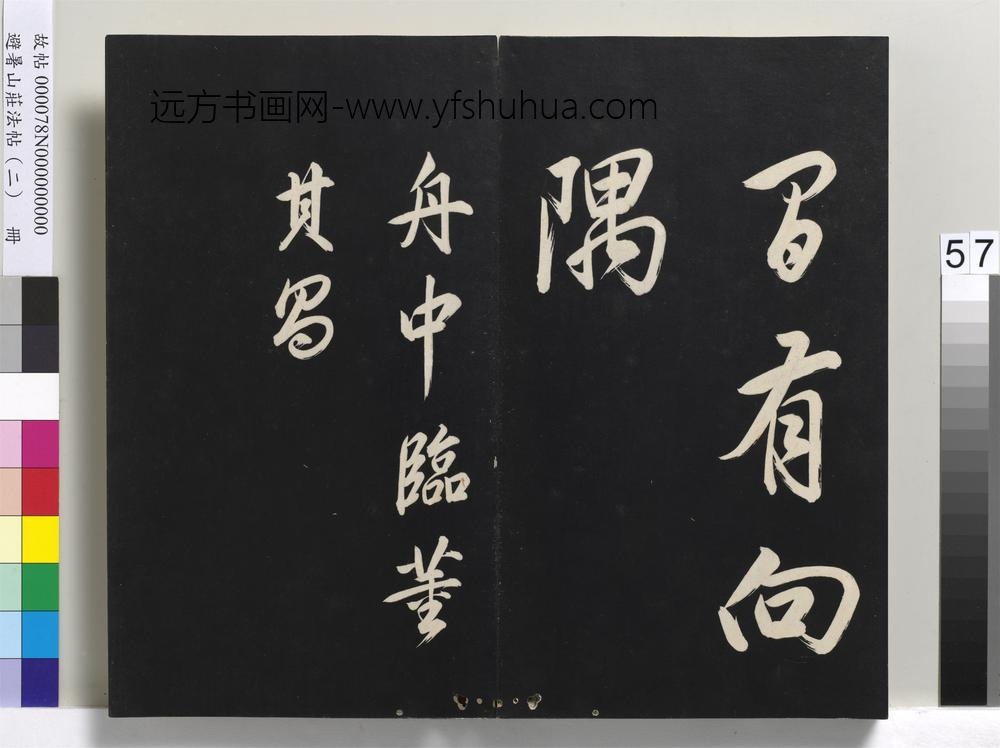 远方书画网-www.yfshuhua.com
間有向
隅
舟中臨董
其昌
故帖 000078N000000000
避暑山莊法帖(二) 冊
57